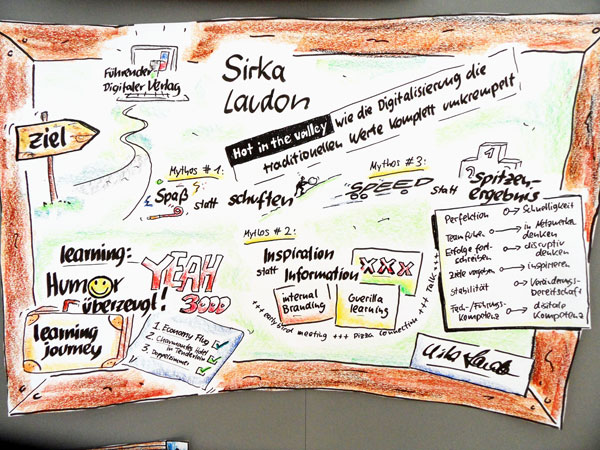 Führender
Digitaler Verlag
Sirka
Laudon
Ziel
Hot in the valley wie die Digitalisierung die
traditionellen Werte komplett umkrempelt
Mythos #1:
Spaß statt schuften
Mythos #3:
SPEED statt Spitzen-
ergebnis
Perfektion Schnelligkeit
Team führen in Netzwerken
denken
Erfolge fort-
schreiben disruptiv
denken
Ziele vorgeben inspirieren
Stabilität Veränderungs-
bereitschaft
Fach-/Führungs-
kompetenz digitale
Kompetenz
Mythos #2:
Inspiration
statt Information
xxx
internal
Branding
Guerilla
learning
+++ early bird meeting +++ pizza connection +++ Talk
learning:
Humor
überzeugt!
YEAH
3000
learning
journey
1. Economy Flug
2. Hotel
in Tenderloin
3. Doppelzimmer